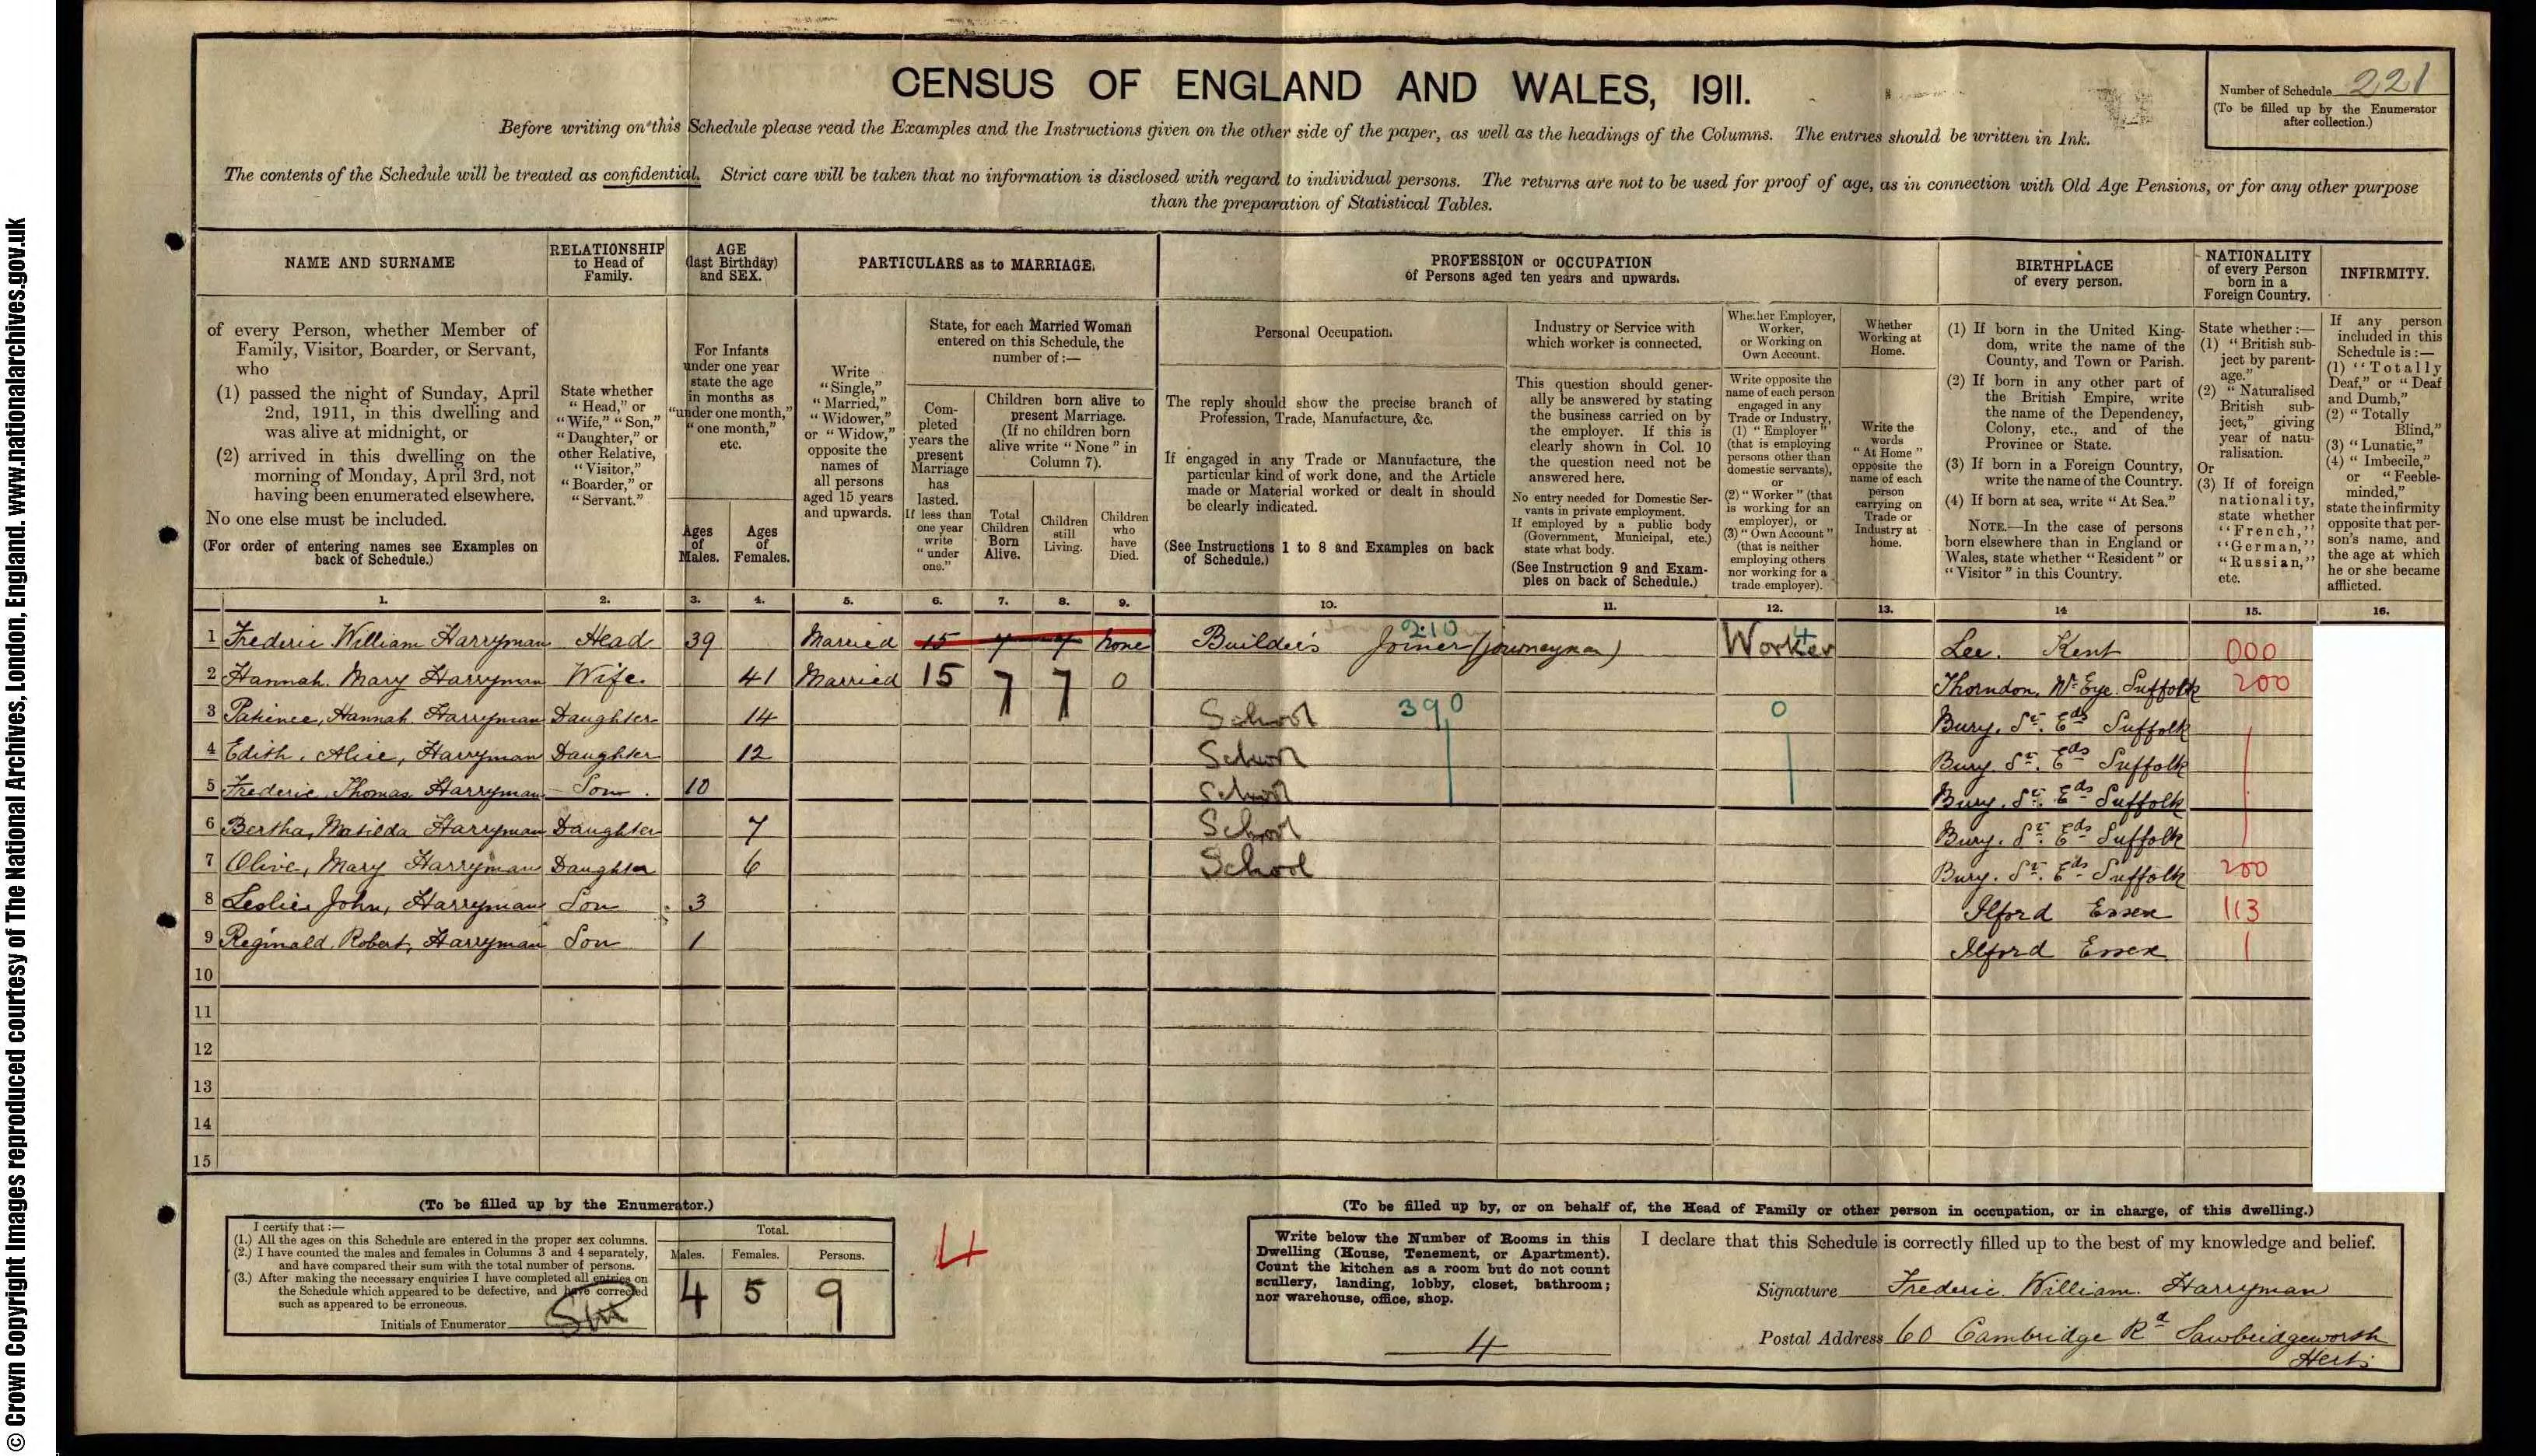 CENSUS OF ENGLAND AND WALES, 1911.
Number of Schedule 221
(To be filled up by the Enumerator
after collection.)
Before writing on this Schedule please read the Examples and the Instructions given on the other side of the paper, as well as the headings of the Columns. The entries should be written in Ink.
The contents of the Schedule will be treated as confidential. Strict care will be taken that no information is disclosed with regard to individual persons. The returns are not to be used for proof of age, as in connection with Old Age Pensions, or for any other purpose
than the preparation of Statistical Tables.
NAME AND SURNAME
of every Person, whether Member of
Family, Visitor, Boarder, or Servant,
who
(1) passed the night of Sunday, April
2nd, 1911, in this dwelling and
was alive at midnight, or
(2) arrived in this dwelling on the
morning of Monday, April 3rd, not
having been enumerated elsewhere.
No one else must be included.
(For order of entering names see Examples on
back of Schedule.)
RELATIONSHIP
to Head of
Family.
State whether
"Head," or
"Wife," "Son,"
"Daughter," or
other Relative,
"Visitor,"
"Boarder," or
"Servant."
AGE
(last Birthday)
and SEX.
For Infants
under one year
state the age
in months as
"under one month,"
"one month,"
etc.
Ages
of
Males.
Ages
of
Females.
PARTICULARS as to MARRIAGE.
Write
"Single,"
"Married,"
"Widower,"
or "Widow,"
opposite the
names of
all persons
aged 15 years
and upwards.
State, for each Married Woman
entered on this Schedule, the
number of :—
Com-
pleted
years the
present
Marriage
has
lasted.
If less than
one year
write
"under
one."
Children born alive to
present Marriage.
(If no children born
alive write "None" in
Column 7).
Total
Children
Born
Alive.
Children
still
Living.
Children
who
have
Died.
PROFESSION or OCCUPATION
of Persons aged ten years and upwards.
Personal Occupation.
The reply should show the precise branch of
Profession, Trade, Manufacture, &c.
If engaged in any Trade or Manufacture, the
particular kind of work done, and the Article
made or Material worked or dealt in should
be clearly indicated.
(See Instructions 1 to 8 and Examples on back
of Schedule.)
Industry or Service with
which worker is connected.
This question should gener-
ally be answered by stating
the business carried on by
the employer. If this is
clearly shown in Col. 10
the question need not be
answered here.
No entry needed for Domestic Ser-
vants in private employment.
If employed by a public body
(Government, Municipal, etc.)
state what body.
(See Instruction 9 and Exam-
ples on back of Schedule.)
Whether Employer,
Worker,
or Working on
Own Account.
Write opposite the
name of each person
engaged in any
Trade or Industry,
(1) "Employer"
(that is employing
persons other than
domestic servants),
or
(2) "Worker" (that
is working for an
employer), or
(3) "Own Account"
(that is neither
employing others
nor working for a
trade employer).
Whether
Working at
Home.
Write the
words
"At Home"
opposite the
name of each
person
carrying on
Trade or
Industry at
home.
BIRTHPLACE
of every person.
(1) If born in the United King-
dom, write the name of the
County, and Town or Parish.
(2) If born in any other part of
the British Empire, write
the name of the Dependency,
Colony, etc., and of the
Province or State.
(3) If born in a Foreign Country,
write the name of the Country.
(4) If born at sea, write "At Sea."
NOTE.—In the case of persons
born elsewhere than in England or
Wales, state whether "Resident" or
"Visitor" in this Country.
NATIONALITY
of every Person
born in a
Foreign Country.
State whether :—
(1) "British sub-
ject by parent-
age."
(2) "Naturalised
British sub-
ject," giving
year of natu-
ralisation.
Or
(3) If of foreign
nationality,
state whether
"French,"
"German,"
"Russian,"
etc.
INFIRMITY.
If any person
included in this
Schedule is :—
(1) "Totally
Deaf," or "Deaf
and Dumb,"
(2) "Totally
Blind,"
(3) "Lunatic,"
(4) "Imbecile,"
or "Feeble-
minded,"
state the infirmity
opposite that per-
son's name, and
the age at which
he or she became
afflicted.
1. 2. 3. 4. 5. 6. 7. 8. 9. 10. 11. 12. 13. 14 15. 16.
1 Frederic William Harryman Head 39 Married 15 7 7 None Builder's Joiner (journeyman) 210 Worker 4 Lee. Kent 000
2 Hannah. Mary Harryman Wife. 41 Married 15 7 7 0 Thorndon, Nr Eye. Suffolk 200
3 Patience, Hannah. Harryman Daughter 14 School 390 0 Bury. St. Eds Suffolk
4 Edith, Alice, Harryman Daughter 12 School Bury. St. Eds Suffolk
5 Frederic, Thomas Harryman Son. 10 School Bury. St. Eds Suffolk
6 Bertha, Matilda Harryman Daughter 7 School Bury. St. Eds Suffolk
7 Olive, Mary Harryman Daughter 6 School Bury. St. Eds Suffolk 200
8 Leslie John, Harryman Son 3 Ilford Essex 113
9 Reginald Robert, Harryman Son 1 Ilford Essex
10
11
12
13
14
15
(To be filled up by the Enumerator.)
I certify that :—
(1.) All the ages on this Schedule are entered in the proper sex columns.
(2.) I have counted the males and females in Columns 3 and 4 separately,
and have compared their sum with the total number of persons.
(3.) After making the necessary enquiries I have completed all entries on
the Schedule which appeared to be defective, and have corrected
such as appeared to be erroneous.
Initials of Enumerator
Total.
Males. Females. Persons.
4 5 9
4
(To be filled up by, or on behalf of, the Head of Family or other person in occupation, or in charge, of this dwelling.)
Write below the Number of Rooms in this
Dwelling (House, Tenement, or Apartment).
Count the kitchen as a room but do not count
scullery, landing, lobby, closet, bathroom;
nor warehouse, office, shop.
4
I declare that this Schedule is correctly filled up to the best of my knowledge and belief.
Signature Frederic William Harryman
Postal Address 60 Cambridge Rd Sawbridgeworth
Herts
© Crown Copyright Images reproduced courtesy of The National Archives, London, England. www.nationalarchives.gov.uk